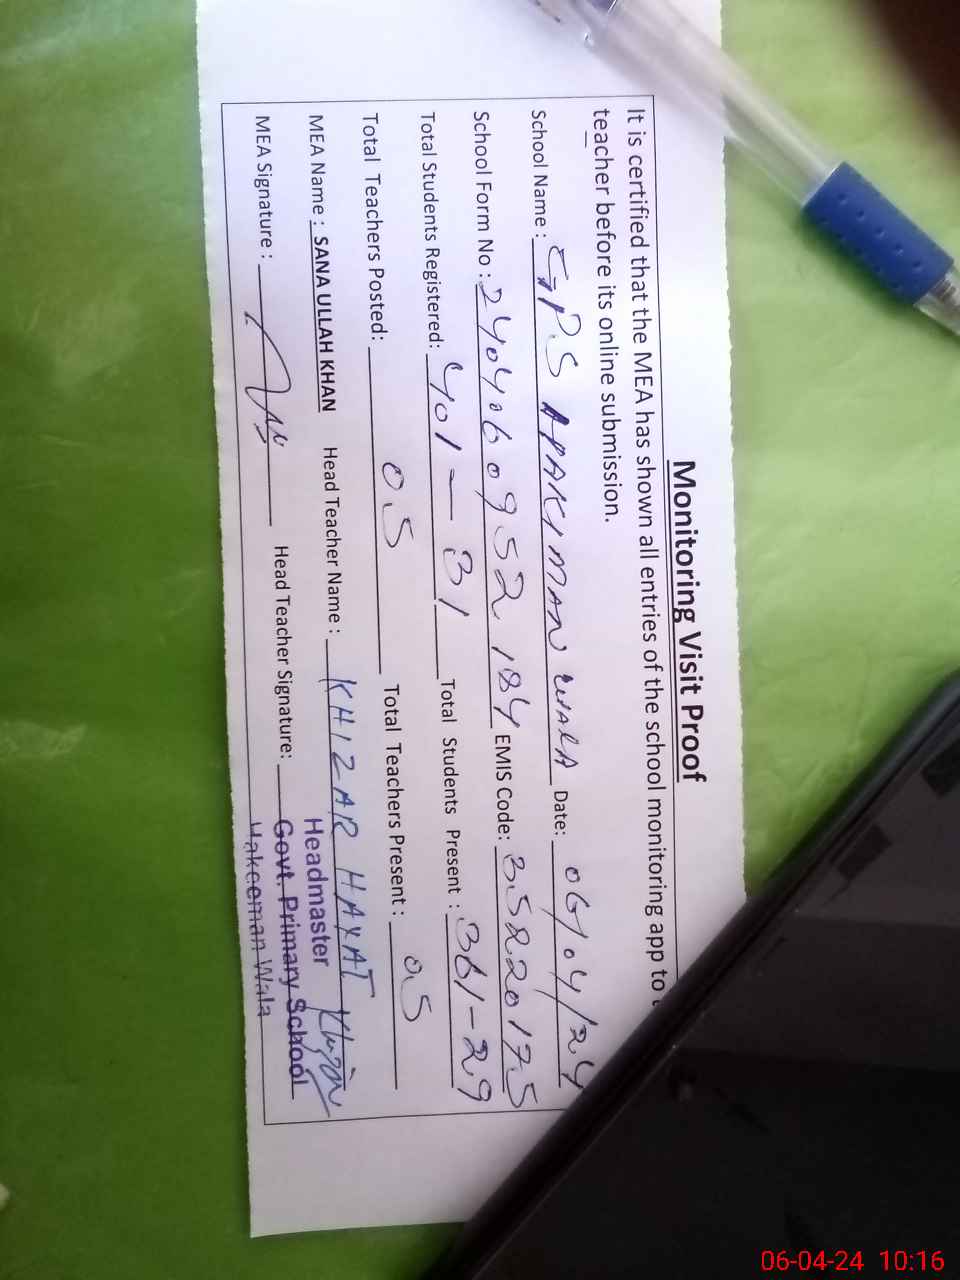 Monitoring Visit Proof
It is certified that the MEA has shown all entries of the school monitoring app to
teacher before its online submission.
School Name : GPS Date: 06/04/24
School Form No : 2404060952184 EMIS Code: 35820175
Total Students Registered: 401 - 31 Total Students Present : 361-29
Total Teachers Posted: 05 Total Teachers Present : 05
MEA Name : SANA ULLAH KHAN Head Teacher Name : KHIZAR HAYAT
MEA Signature : Head Teacher Signature:
Headmaster
Govt. Primary School
Hakeeman Wala
06-04-24 10:16